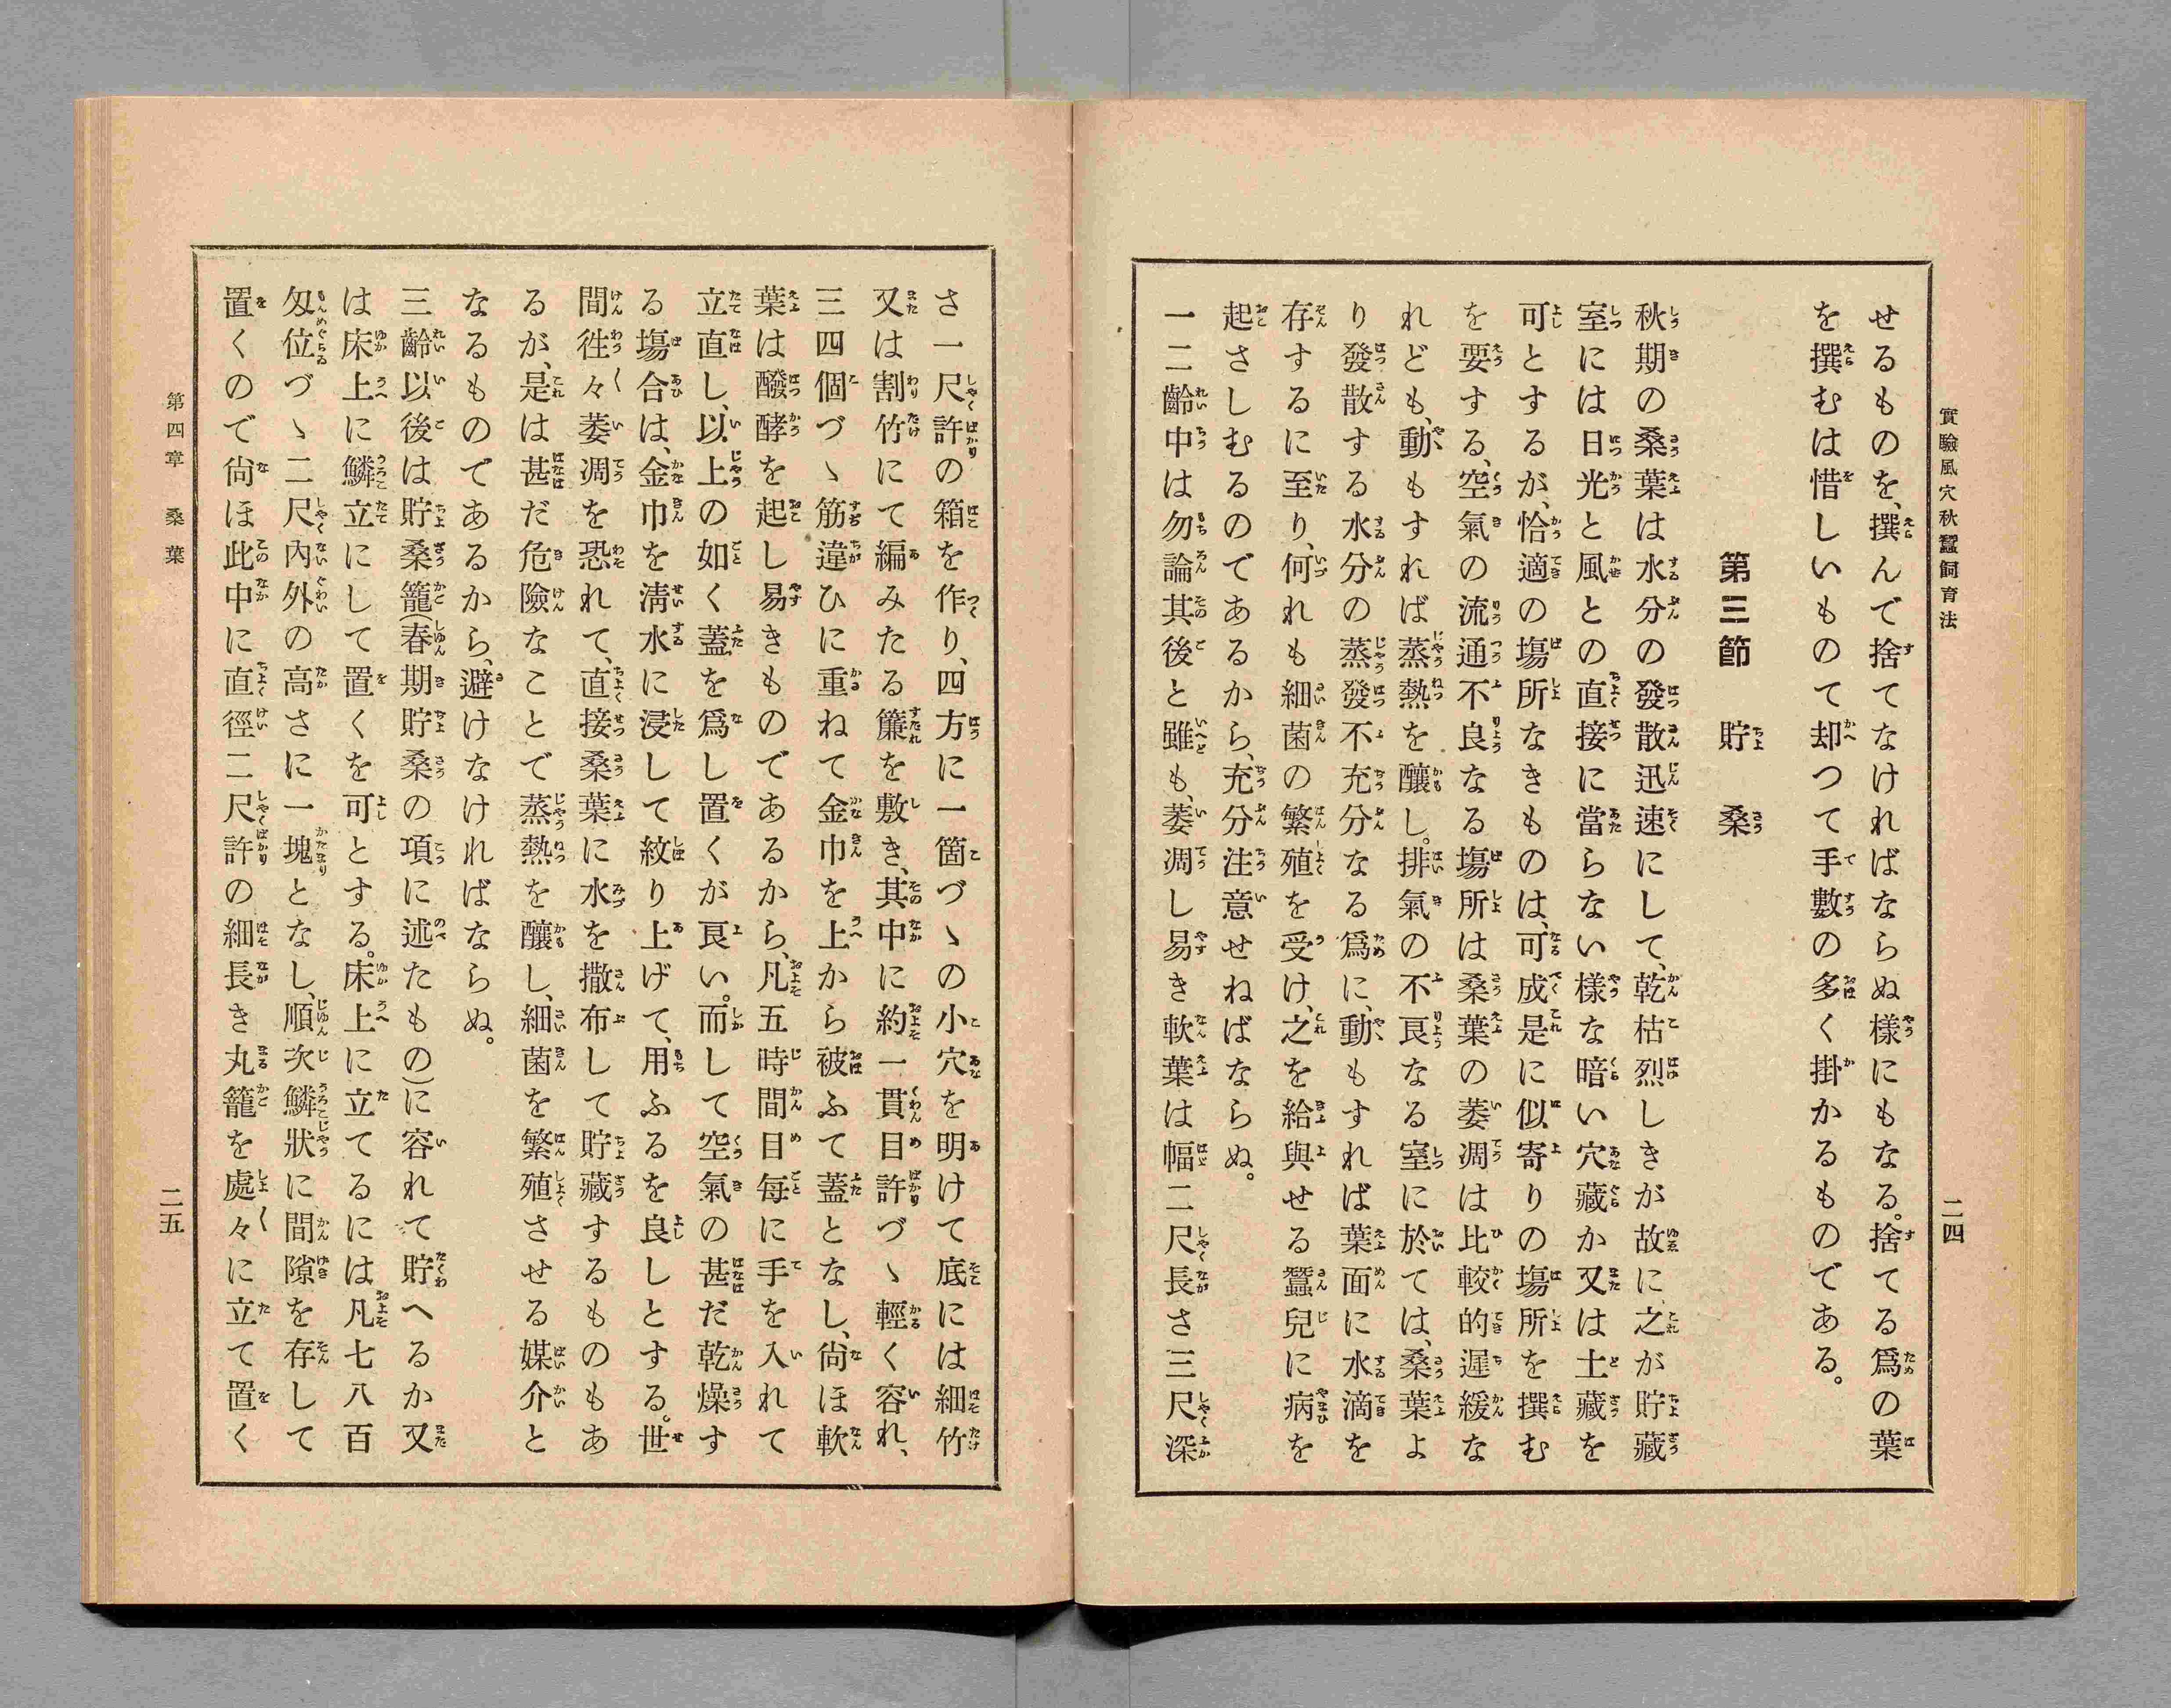 實驗風穴秋蠶飼育法
二四
せるものを、撰んで捨てなければならぬ樣にもなる。捨てる爲の葉
を撰むは惜しいもので却つて手數の多く掛かるものである。
第三節 貯桑
秋期の桑葉は水分の發散迅速にして、乾枯烈しきが故に、之が貯藏
室には日光と風との直接に當らない樣な暗い穴藏か又は土藏を
可とするが、恰適の場所なきものは、可成是に似寄りの場所を撰む
を要する、空氣の流通不良なる場所は桑葉の萎凋は比較的遲緩な
れども、動もすれば蒸熱を釀し。排氣の不良なる室に於ては、桑葉よ
り發散する水分の蒸發不充分なる爲めに、動もすれば葉面に水滴を
存するに至り、何れも細菌の繁殖を受け、之を給與せる蠶兒に病を
起さしむるのであるから、充分注意せねばならぬ。
一二齡中は勿論其後と雖も、萎凋し易き軟葉は幅二尺長さ三尺深
さ一尺許の箱を作り、四方に一箇づゝの小穴を明けて底には細竹
又は割竹にて編みたる簾を敷き、其中に約一貫目許づゝ輕く容れ、
三四個づゝ筋違ひに重ねて金巾を上から被ふて蓋となし、尙ほ軟
葉は醱酵を起し易きものであるから、凡五時間目每に手を入れて
立直し、以上の如く蓋を爲し置くが良い。而して空氣の甚だ乾燥す
る場合は、金巾を淸水に浸して紋り上げて、用ふるを良しとする。世
間徃々萎凋を恐れて、直接桑葉に水を撒布して貯藏するものもあ
るが、是は甚だ危險なことで蒸熱を釀し、細菌を繁殖させる媒介と
なるものであるから、避けなければならぬ。
三齡以後は貯桑籠(春期貯桑の項に述たもの)に容れて貯へるか又
は床上に鱗立にして置くを可とする。床上に立てるには凡七八百
匁位づゝ二尺內外の高さに一塊となし、順次鱗狀に間隙を存して
置くので尙ほ此中に直徑二尺許の細長き丸籠を處々に立て置く
第四章 桑葉
二五